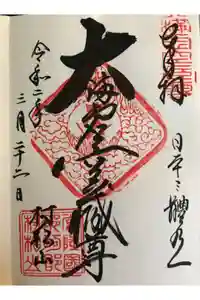 奉拝
日本三體之一
大満虚空蔵尊
村松山
令和二年
三月二十二日